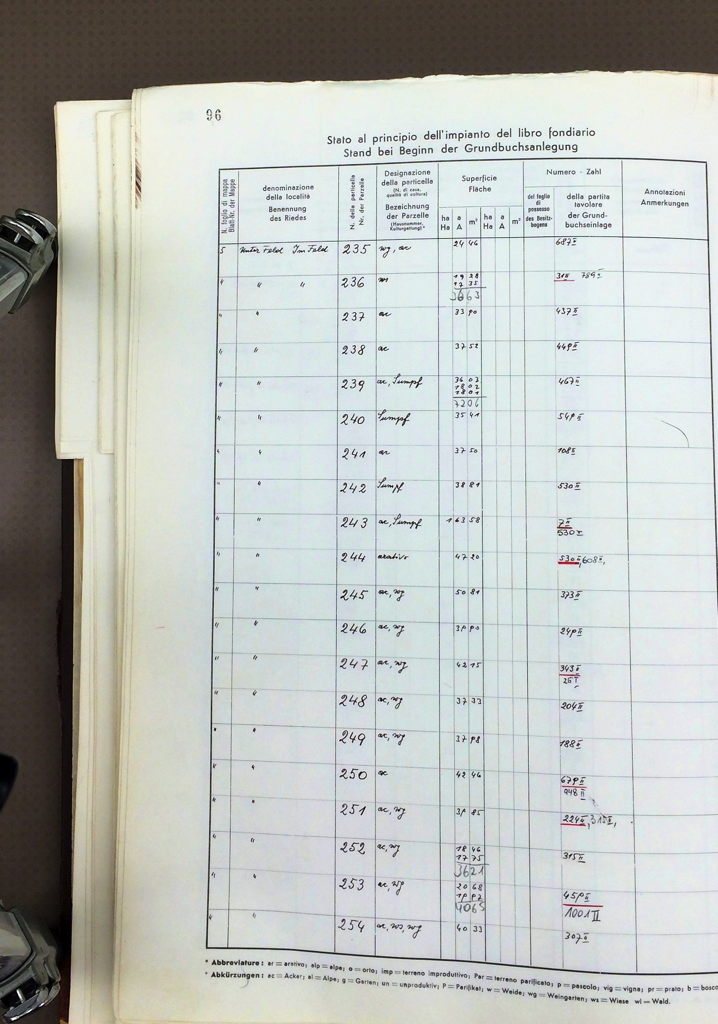 96
Stato al principio dell'impianto del libro fondiario
Stand bei Beginn der Grundbuchsanlegung
N. foglio di mappa
Blatt-Nr. der Mappe
denominazione della località
Benennung des Riedes
N. della particella
Nr. der Parzelle
Designazione della particella
(N. di casa, qualità di coltura)
Bezeichnung der Parzelle
(Hausnummer, Kulturgattung)*
Superficie
Fläche
ha a m² ha a m²
Ha A Ha A
Numero - Zahl
del foglio di possesso
des Besitzbogens
della partita tavolare
der Grundbuchseinlage
Annotazioni
Anmerkungen
5 Unter Feld Im Feld 235 wg, ac 24 46 687 II
" " " 236 ws 19 28 31 II 789 II
17 35
3663
" " 237 ac 33 90 437 II
" " 238 ac 37 52 449 II
" " 239 ac, Sumpf 36 03 467 II
18 02
18 01
7206
" " 240 Sumpf 35 41 549 II
" " 241 ac 37 50 108 II
" " 242 Sumpf 38 81 530 II
" " 243 ac, Sumpf 1 63 58 7 II
530 II
" " 244 arativo 47 20 530 II, 608 II,
" " 245 ac, wg 50 81 373 II
" " 246 ac, wg 39 90 249 II
" " 247 ac, wg 42 15 343 II
" " 248 ac, wg 37 33 204 II
" " 249 ac, wg 37 98 188 II
" " 250 ac 42 46 679 II
948 II
" " 251 ac, wg 39 85 224 II, 315 II,
" " 252 ac, wg 18 46 315 II
17 75
3621
" " 253 ac, wg 20 68 459 II
19 97 1001 II
4065
" " 254 ac, ws, wg 40 33 307 II
* Abbreviature: ar = arativo; alp = alpe; o = orto; imp = terreno improduttivo; Par = terreno parificato; p = pascolo; vig = vigna; pr = prato; b = bosco
* Abkürzungen: ac = Acker; al = Alpe; g = Garten; un = unproduktiv; P = Parifikat; w = Weide; wg = Weingarten; ws = Wiese wl = Wald.